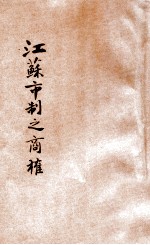 江蘇市制之商榷